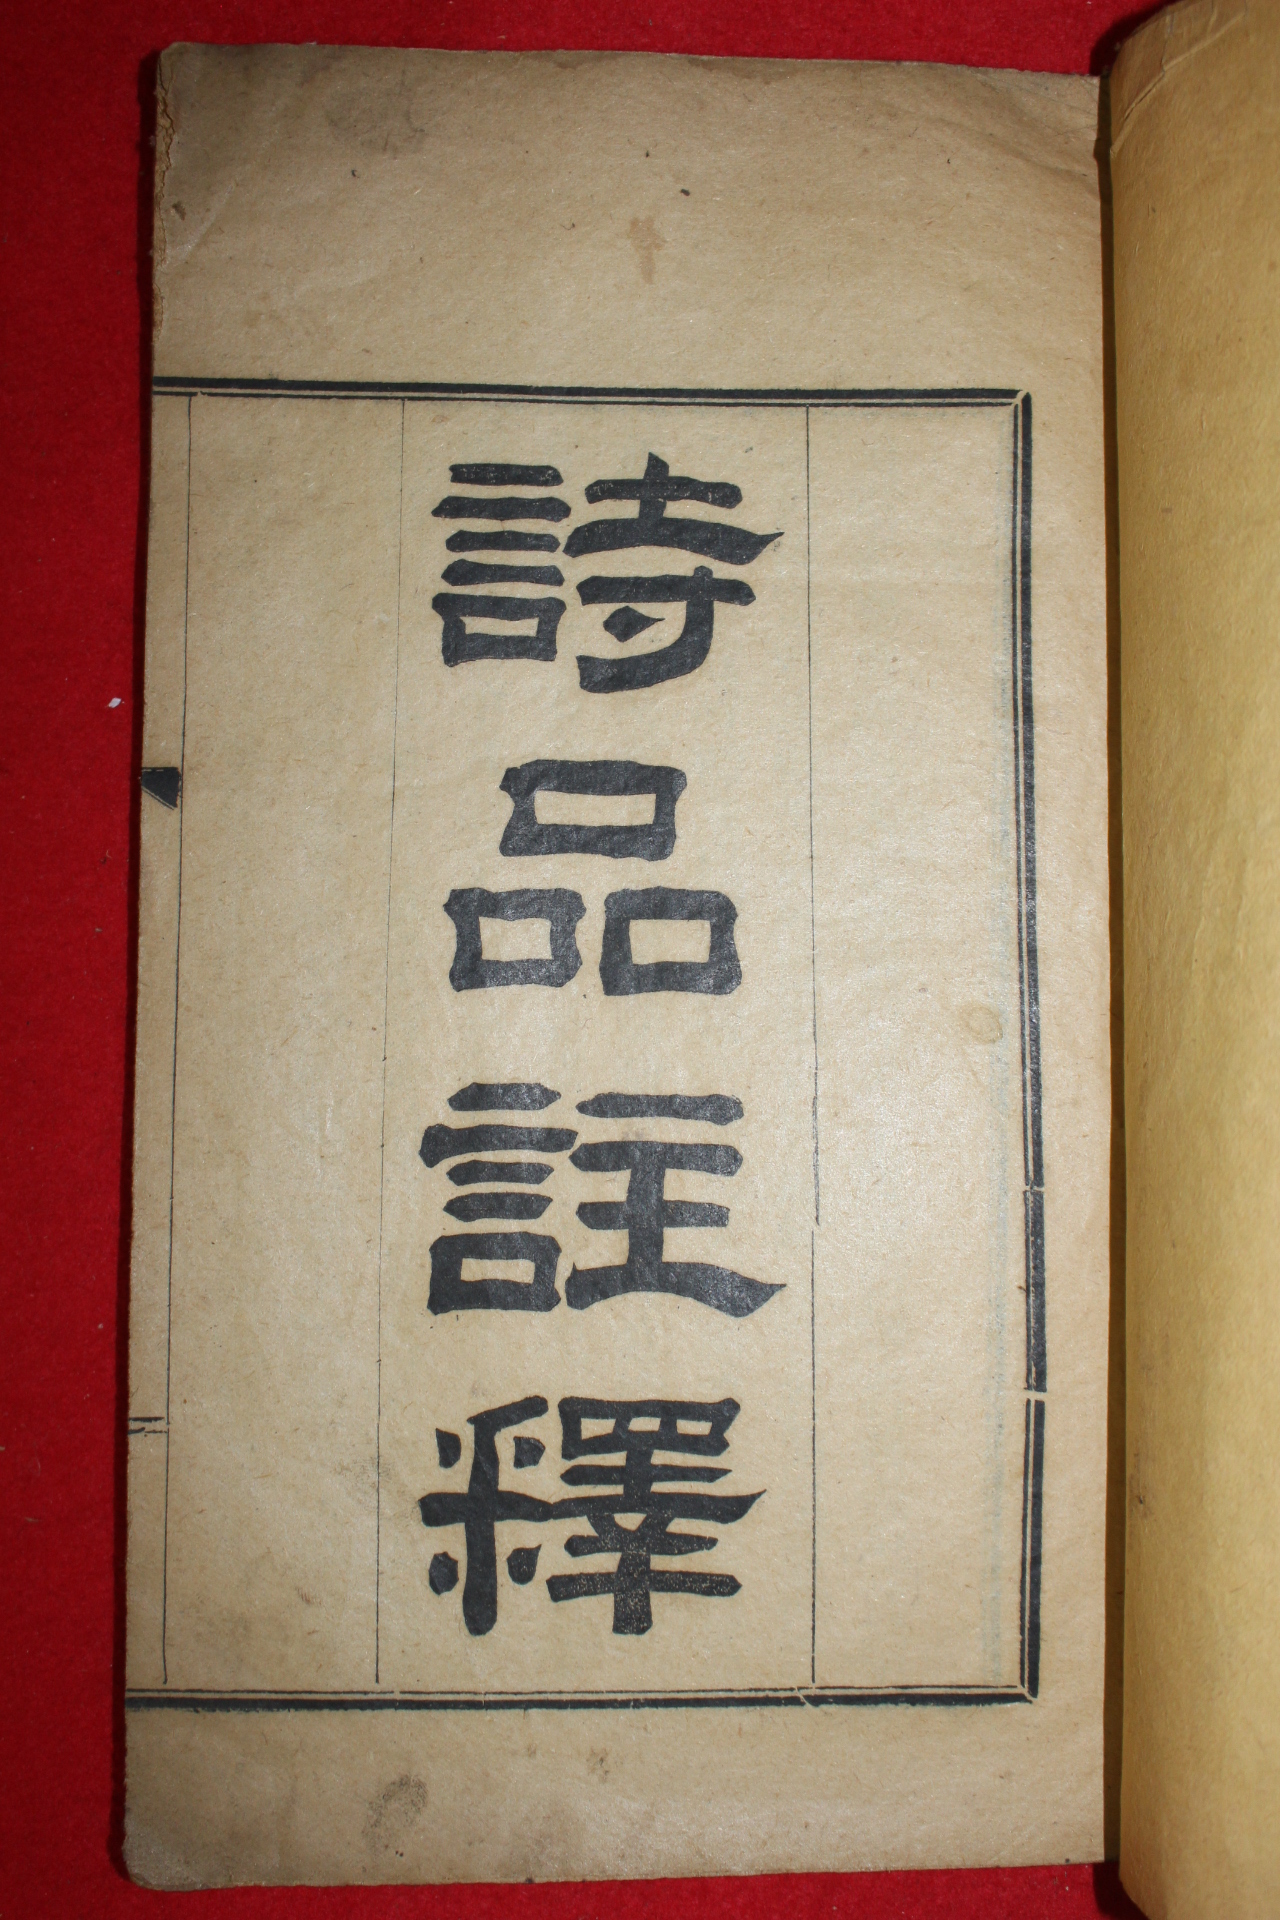 詩品註釋